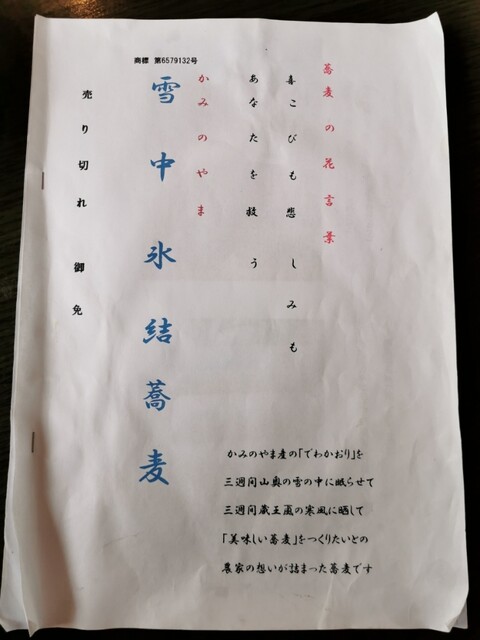 商標 第6579132号
蕎麦の花言葉
喜こびも悲しみも
あなたを救う
かみのやま
雪中氷結蕎麦
売り切れ 御免
かみのやま麦の「でわかおり」を
三週間山奥の雪の中に眠らせて
三週間蔵王颪の寒風に晒して
「美味しい蕎麦」をつくりたいとの
農家の想いが詰まった蕎麦です